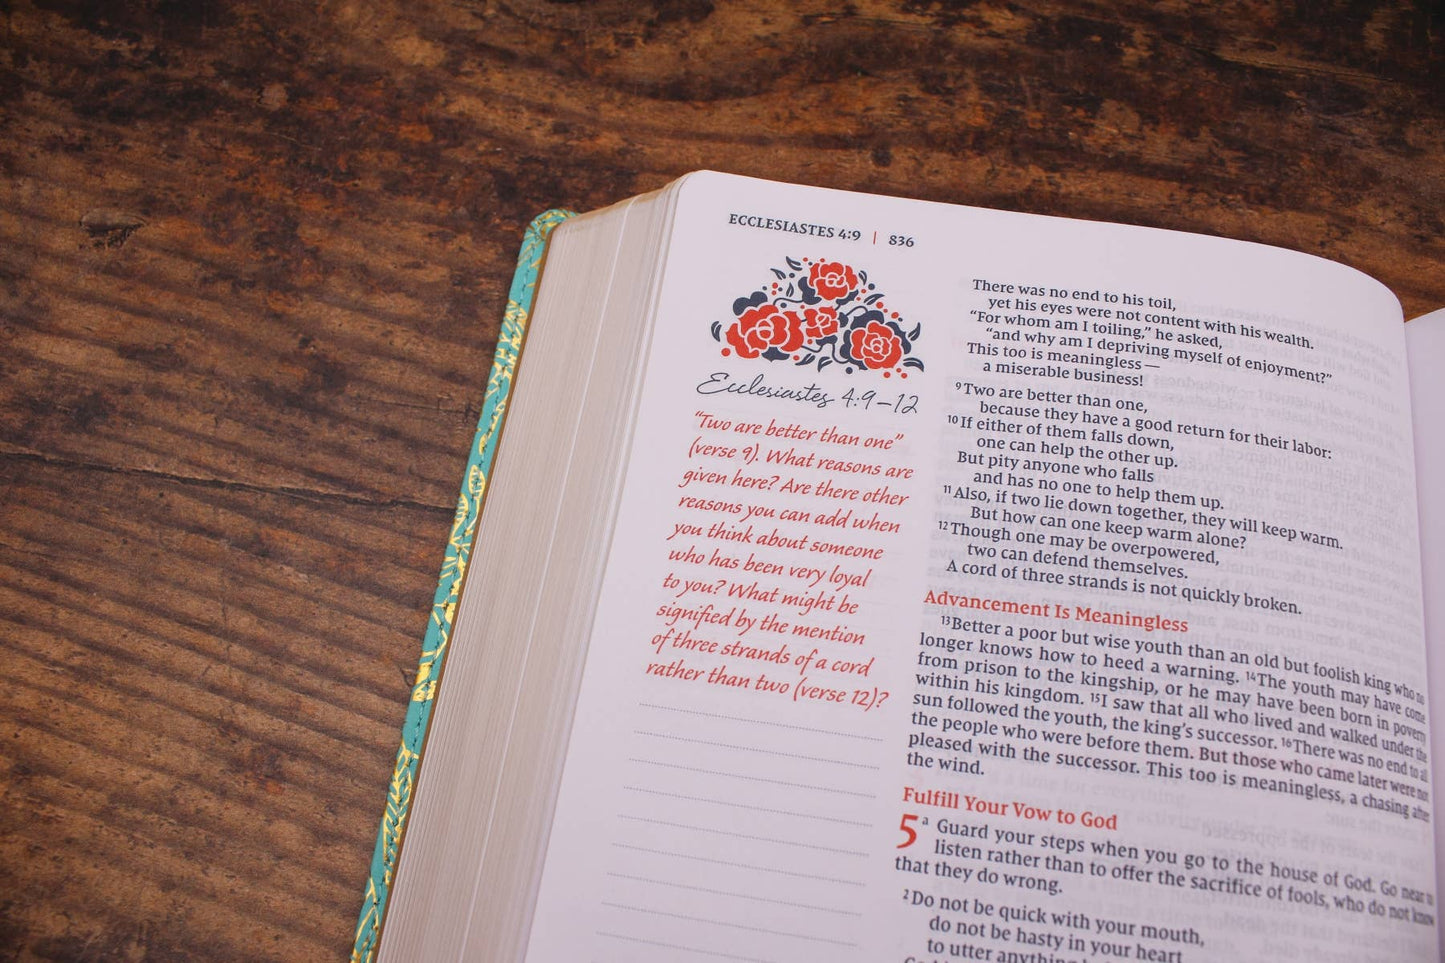 ECCLESIASTES 4:9 | 836
Ecclesiastes 4:9–12
“Two are better than one”
(verse 9). What reasons are
given here? Are there other
reasons you can add when
you think about someone
who has been very loyal
to you? What might be
signified by the mention
of three strands of a cord
rather than two (verse 12)?
There was no end to his toil,
yet his eyes were not content with his wealth.
“For whom am I toiling,” he asked,
“and why am I depriving myself of enjoyment?”
This too is meaningless —
a miserable business!
9 Two are better than one,
because they have a good return for their labor:
10 If either of them falls down,
one can help the other up.
But pity anyone who falls
and has no one to help them up.
11 Also, if two lie down together, they will keep warm.
But how can one keep warm alone?
12 Though one may be overpowered,
two can defend themselves.
A cord of three strands is not quickly broken.
Advancement Is Meaningless
13 Better a poor but wise youth than an old but foolish king who no
longer knows how to heed a warning. 14 The youth may have come
from prison to the kingship, or he may have been born in poverty
within his kingdom. 15 I saw that all who lived and walked under the
sun followed the youth, the king’s successor. 16 There was no end to all
the people who were before them. But those who came later were not
pleased with the successor. This too is meaningless, a chasing after
the wind.
Fulfill Your Vow to God
5 a Guard your steps when you go to the house of God. Go near to
listen rather than to offer the sacrifice of fools, who do not know
that they do wrong.
2 Do not be quick with your mouth,
do not be hasty in your heart
to utter anything